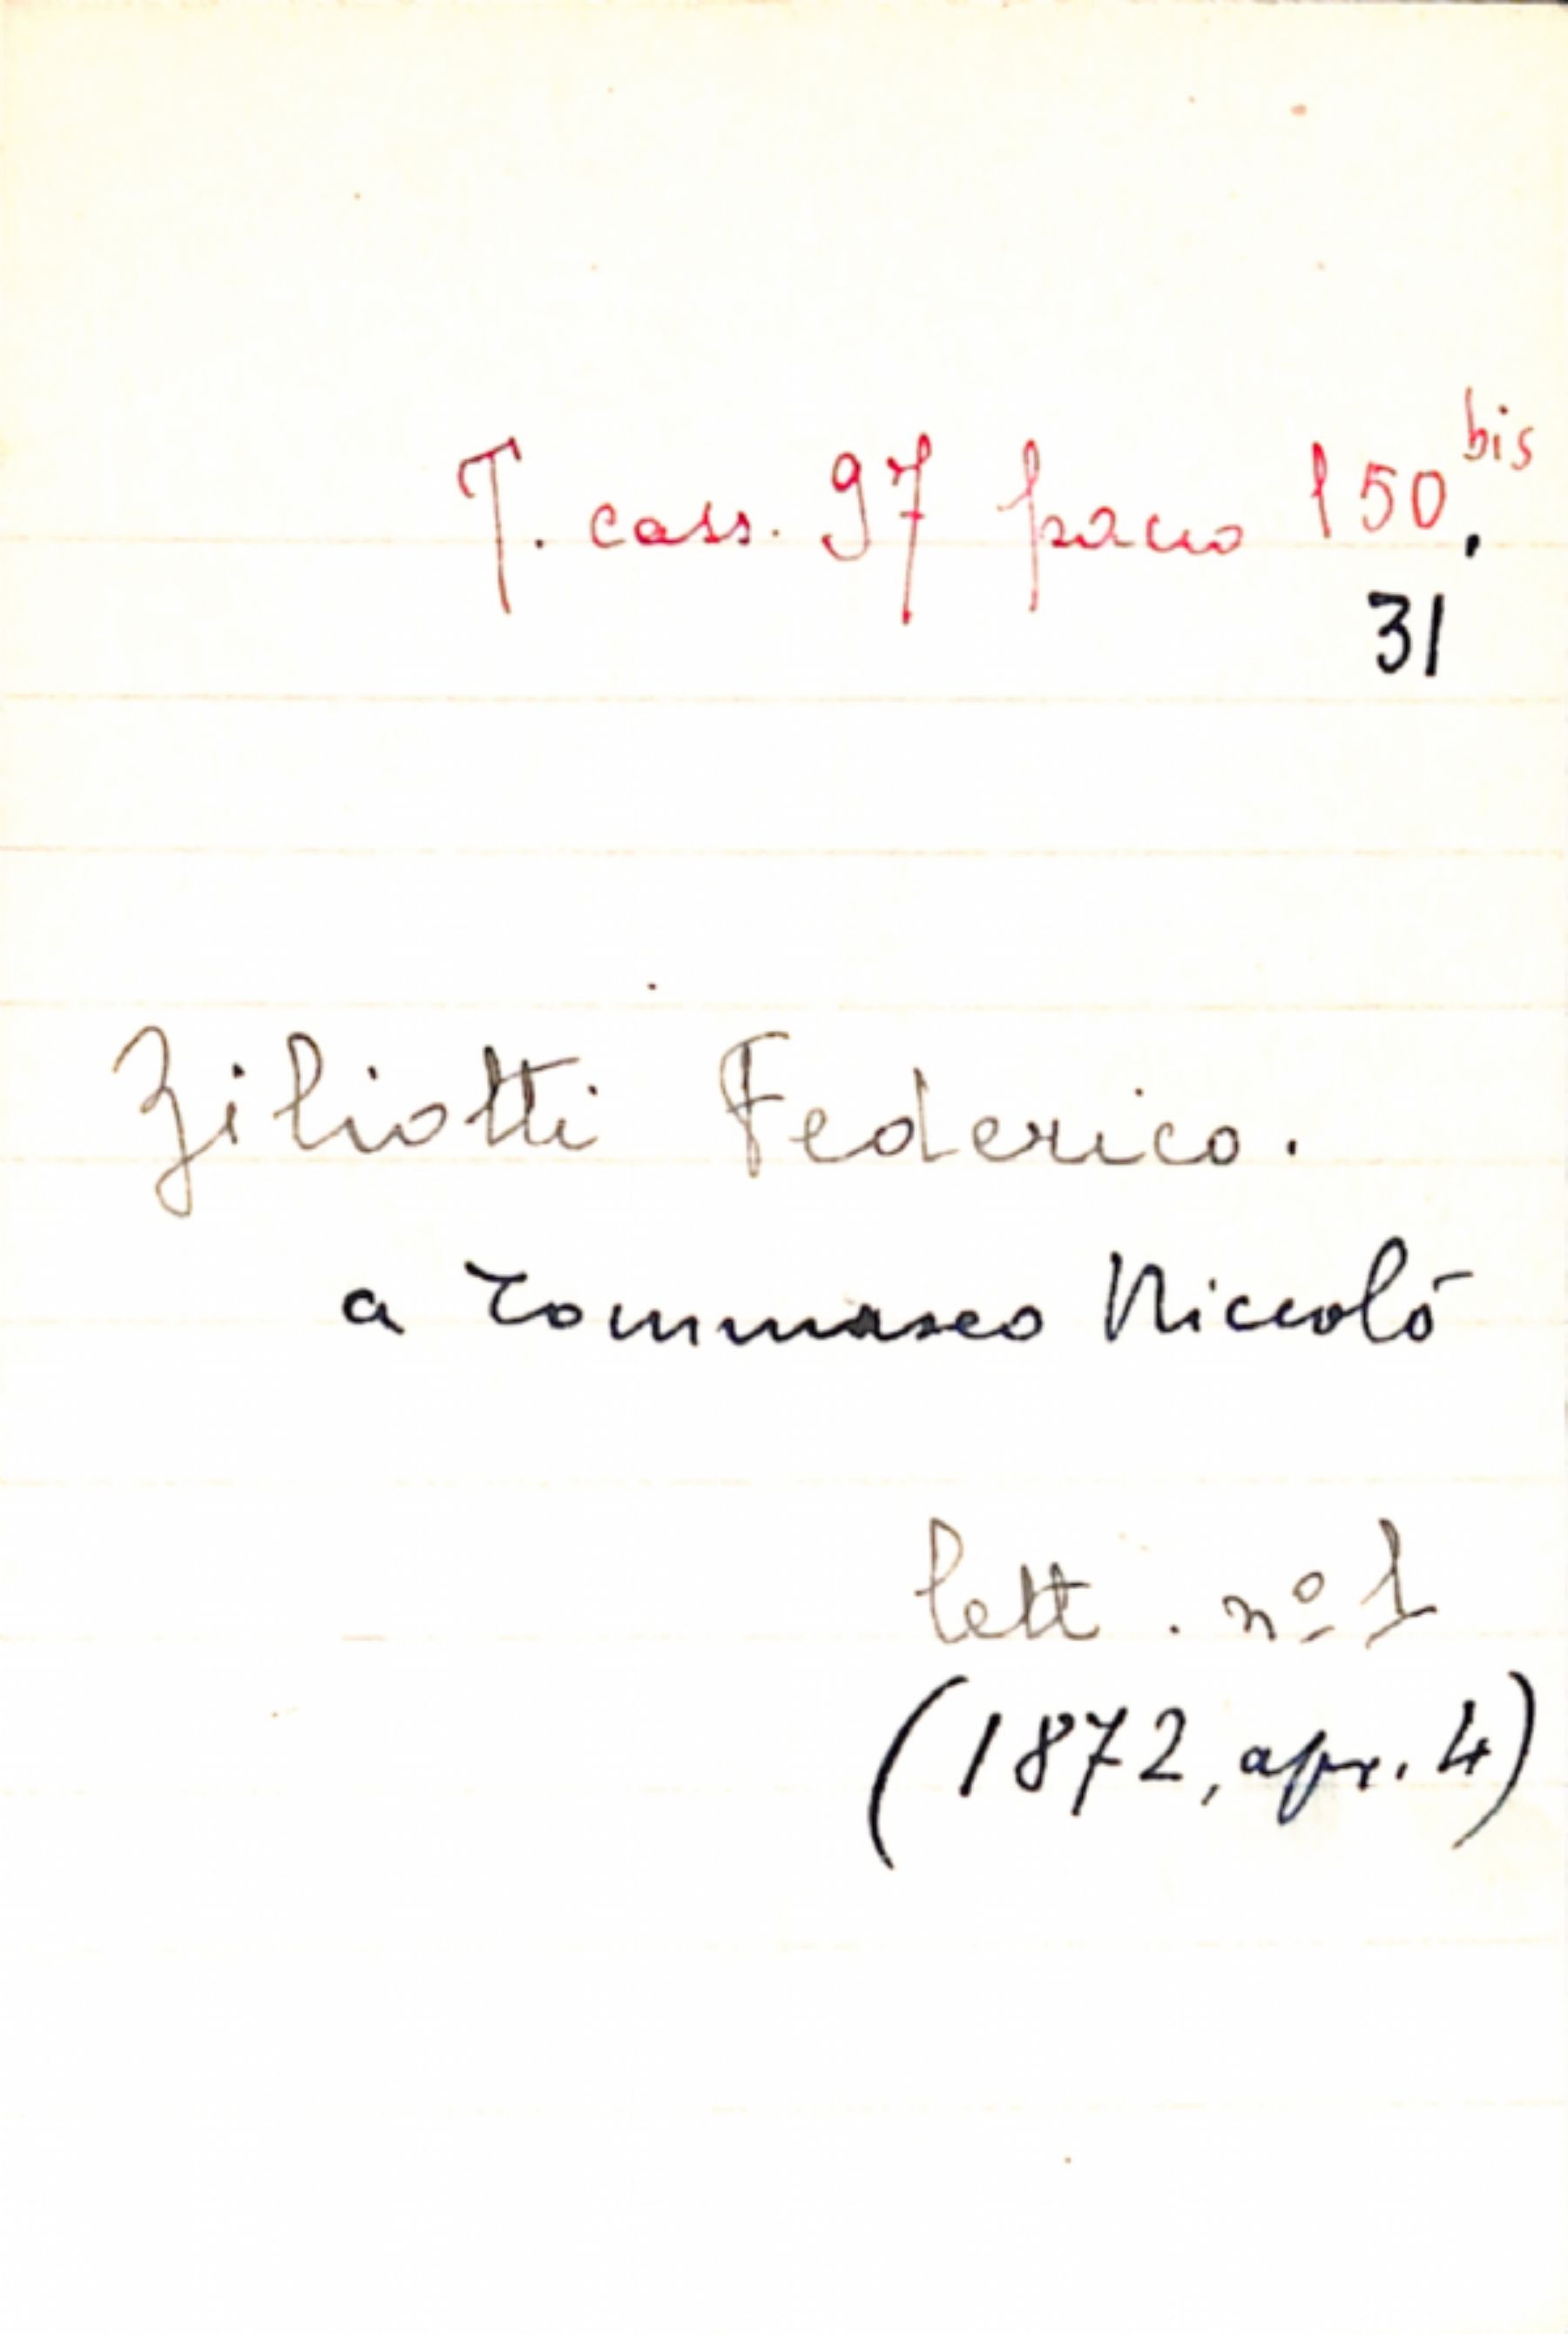 T. cass. 97 pacco 150.bis
31
Ziliotti Federico.
a Tommaseo Niccolò
lett. nº 1
(1872, apr. 4)